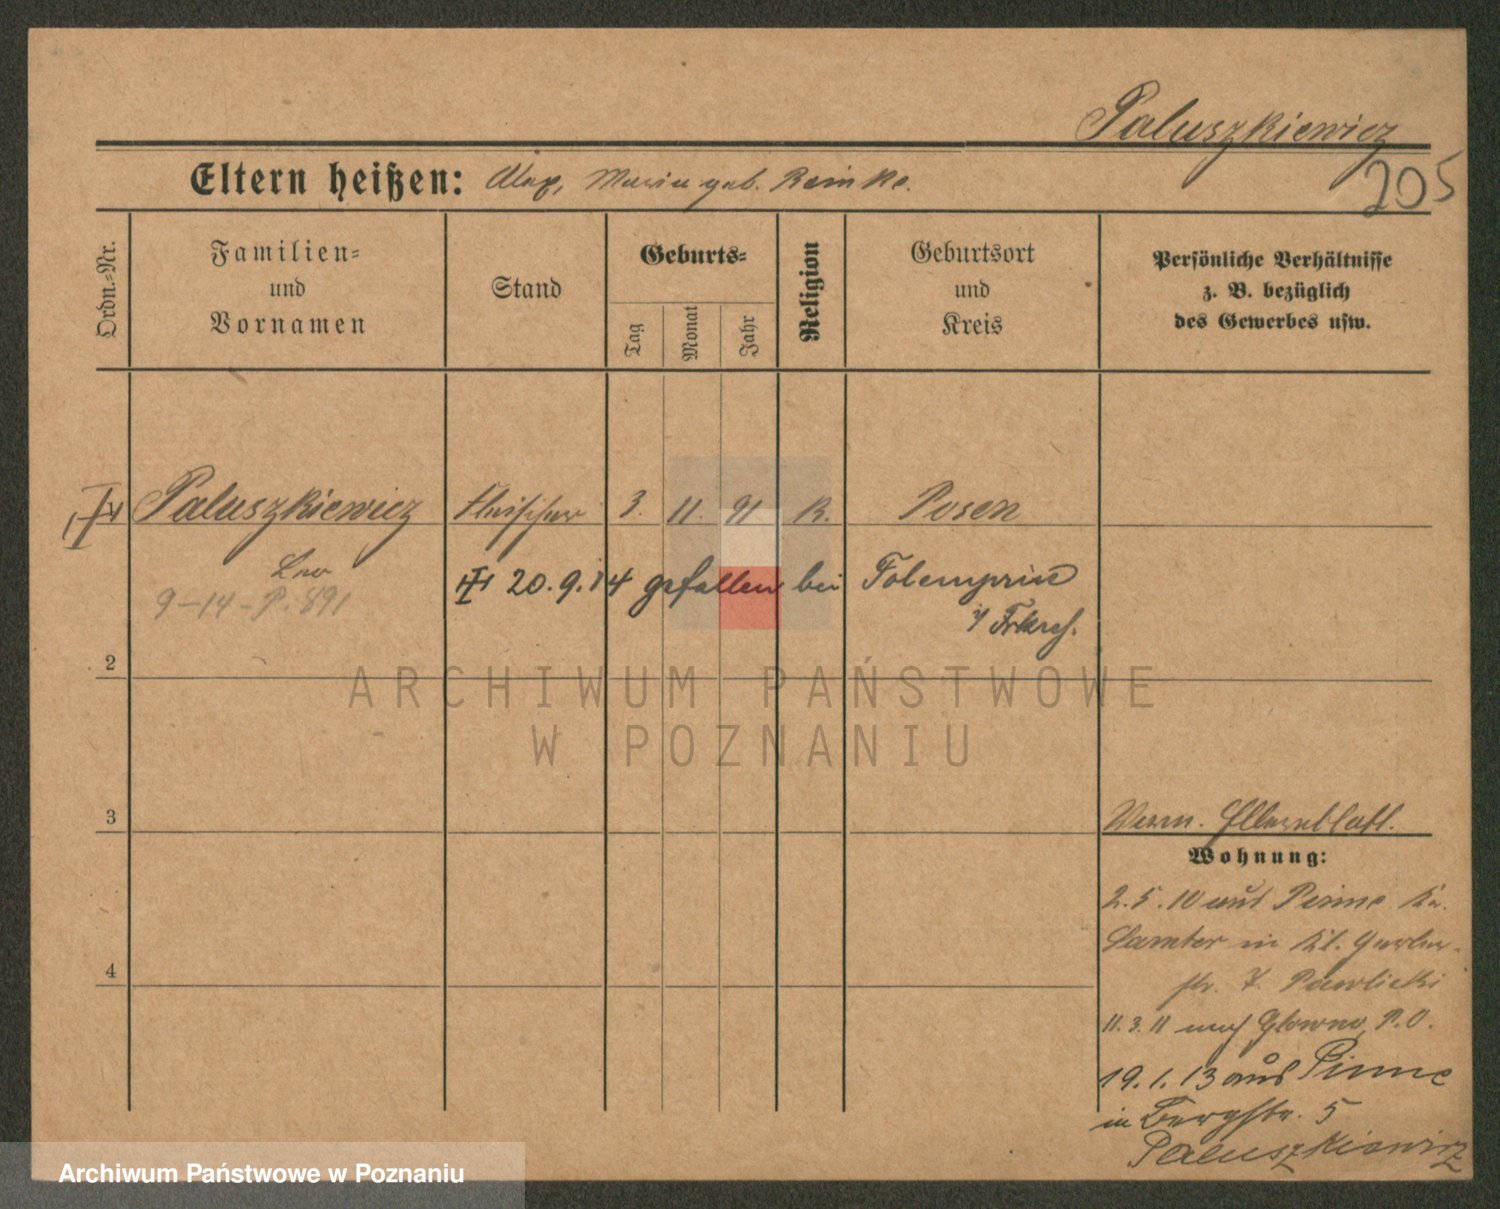 Paluszkiewicz
205
Eltern heißen: Alex, Maria geb. Reinke.
Ordn.-Nr.
Familien-
und
Vornamen
Stand
Geburts-
Tag
Monat
Jahr
Religion
Geburtsort
und
Kreis
Persönliche Verhältnisse
z. B. bezüglich
des Gewerbes usw.
Paluszkiewicz Fleischer 3. 11. 91 K. Posen
Leo
9-14-P. 891
20.9.14 gefallen bei
i/ Frkrch.
2
3
4
Wohnung:
2.5.10 aus Pinne Kr.
Samter in Kl. Gerber-
str. 7. Pawlicki
11.3.11 nach Glowno, P.O.
19.1.13 aus Pinne
in Bergstr. 5
Paluszkiewicz
ARCHIWUM PAŃSTWOWE
W POZNANIU
Archiwum Państwowe w Poznaniu